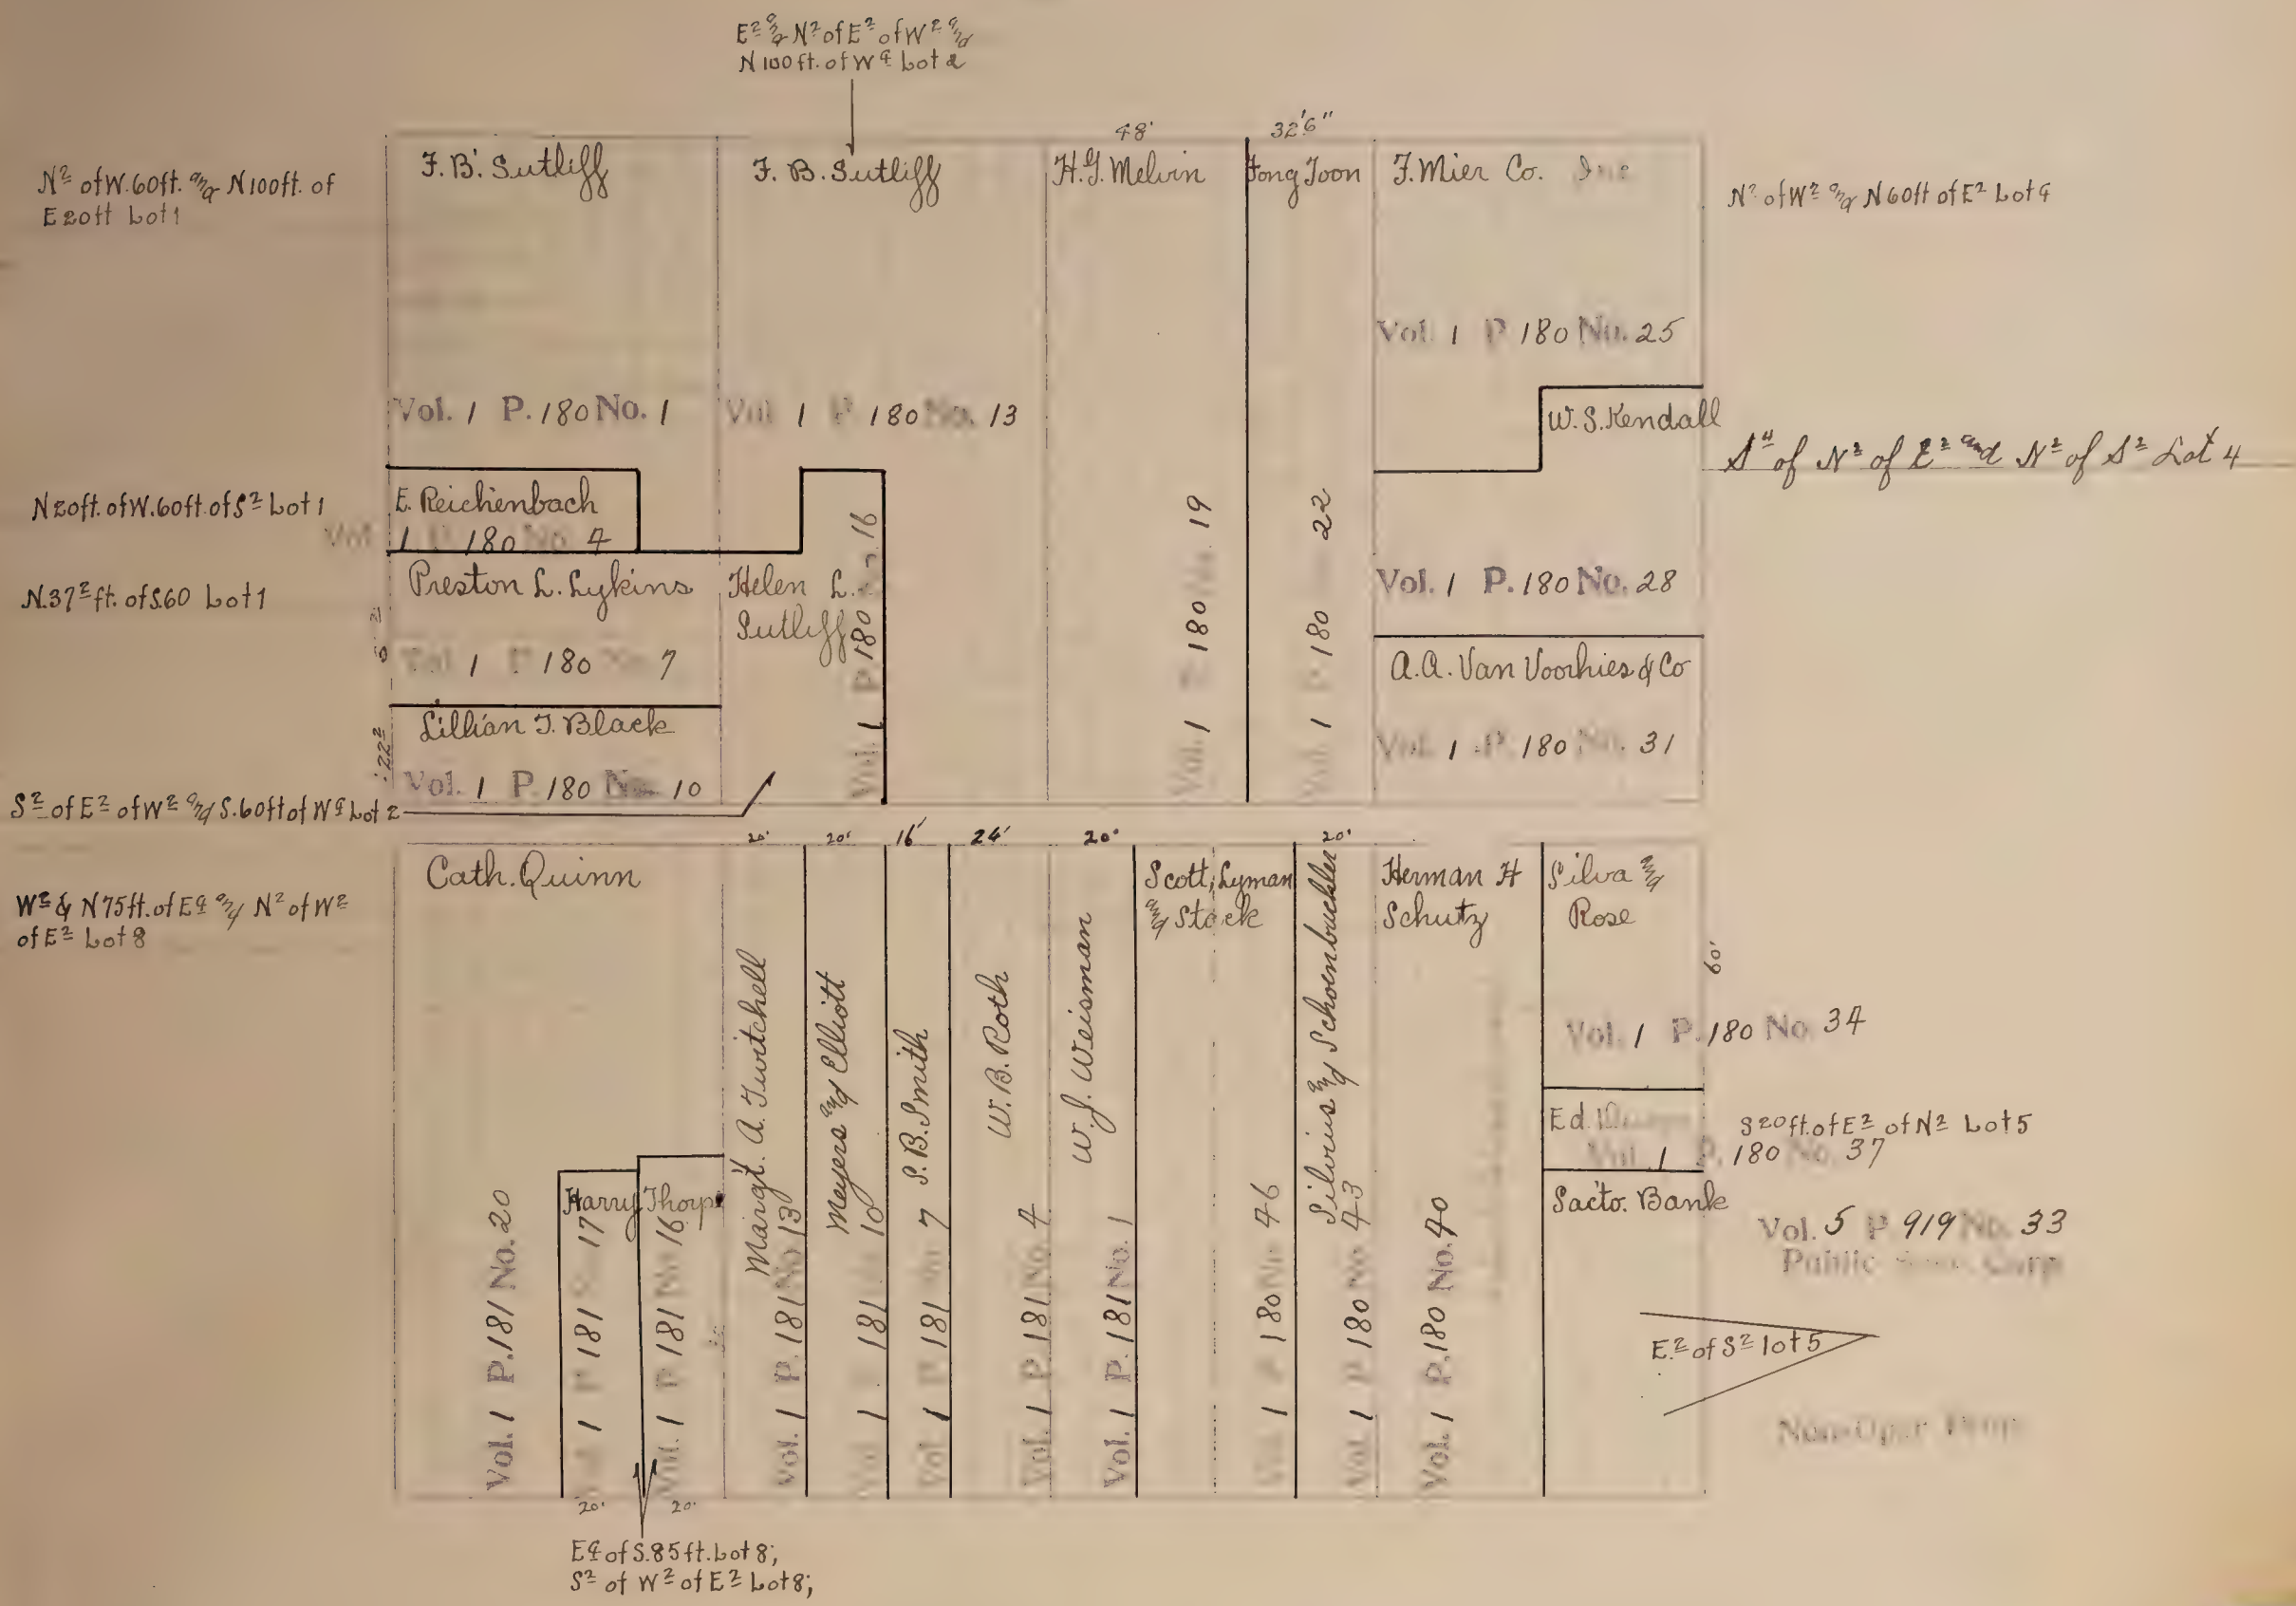 E2 and N2 of E2 of W2 and
N 100 ft. of W4 Lot 2
48'
32'6"
N2 of W. 60ft. and N 100ft. of
E 20ft Lot 1
F. B. Sutliff
Vol. 1 P. 180 No. 1
F. B. Sutliff
Vol 1 P 180 No. 13
H. G. Melvin
Vol. 1 P 180 No. 19
Fong Toon
Vol. 1 P 180 22
F. Mier Co. Inc
Vol. 1 P 180 No. 25
N2 of W2 and N 60ft of E2 Lot 4
W. S. Kendall
Vol. 1 P. 180 No. 28
S4 of N2 of E2 and N2 of S2 Lot 4
N 20ft. of W. 60ft. of S2 Lot 1
E. Reichenbach
Vol 1 P 180 No 4
N. 37 2 ft. of S. 60 Lot 1
Preston L. Lykins
Vol 1 P 180 No 7
Helen L.
Sutliff
Vol. 1 P 180 No. 16
A. A. Van Voorhies & Co
Vol. 1 P. 180 No. 31
22 2
Lillian T. Black
Vol. 1 P 180 No. 10
S2 of E2 of W2 and S. 60ft of W4 Lot 2
20'
20'
16'
24'
20'
20'
W2 & N 75ft. of E4 and N2 of W2
of E2 Lot 8
Cath. Quinn
Vol. 1 P. 181 No. 20
Harry Thorp
Vol. 1 P 181 17
Vol. 1 P 181 No 16
Margt. A. Twitchell
Vol. 1 P. 181 No 13
Meyers and Elliott
Vol 1 P 181 No 10
S. B. Smith
Vol. 1 P 181 No 7
W. B. Roth
Vol. 1 P 181 No. 4
W. J. Weisman
Vol. 1 P. 181 No. 1
Scott, Lyman
and Stack
Vol. 1 P 180 No 46
Silvius and Schoenbuckler
Vol. 1 P 180 No 43
Herman H
Schutz
Vol. 1 P. 180 No. 40
Silva and
Rose
60'
Vol. 1 P. 180 No. 34
Ed.
S 20ft. of E2 of N2 Lot 5
Vol. 1 P. 180 No. 37
Sacto. Bank
Vol. 5 P 919 No. 33
Public Corp
E.2 of S2 lot 5
Non-Oper Prop
20'
20'
E4 of S. 85 ft. Lot 8;
S2 of W2 of E2 Lot 8;